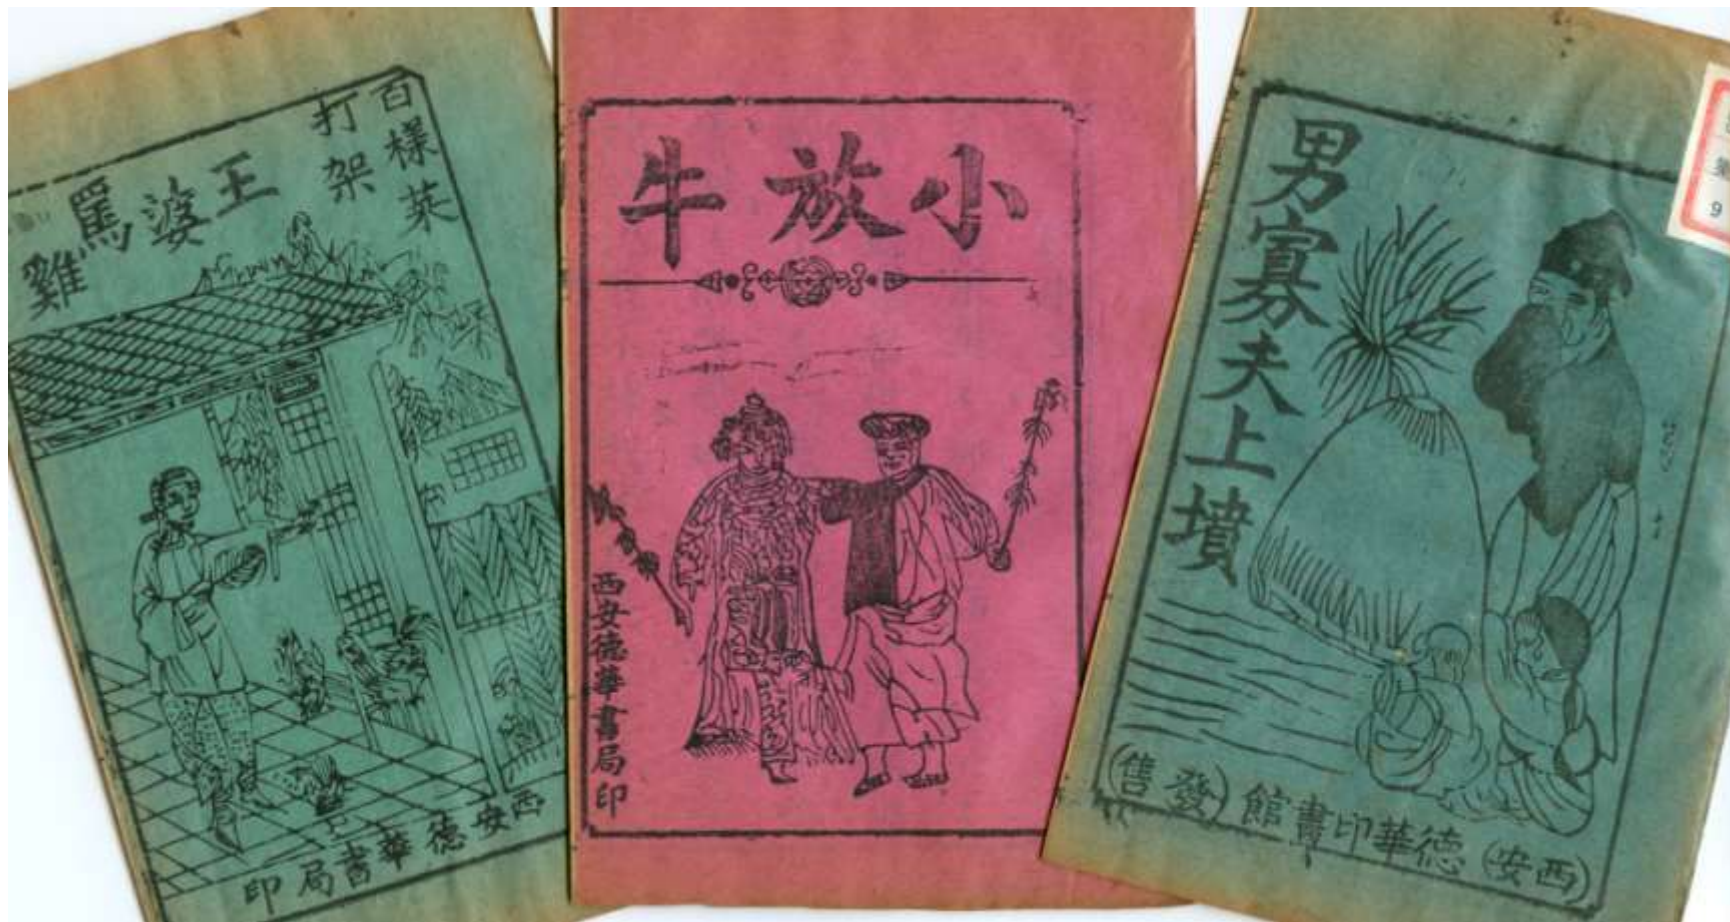 百樣菜
打架
王婆罵雞
西安德華書局印
小放牛
西安德華書局印
男寡夫上墳
(西安)德華印書館(發售)
9